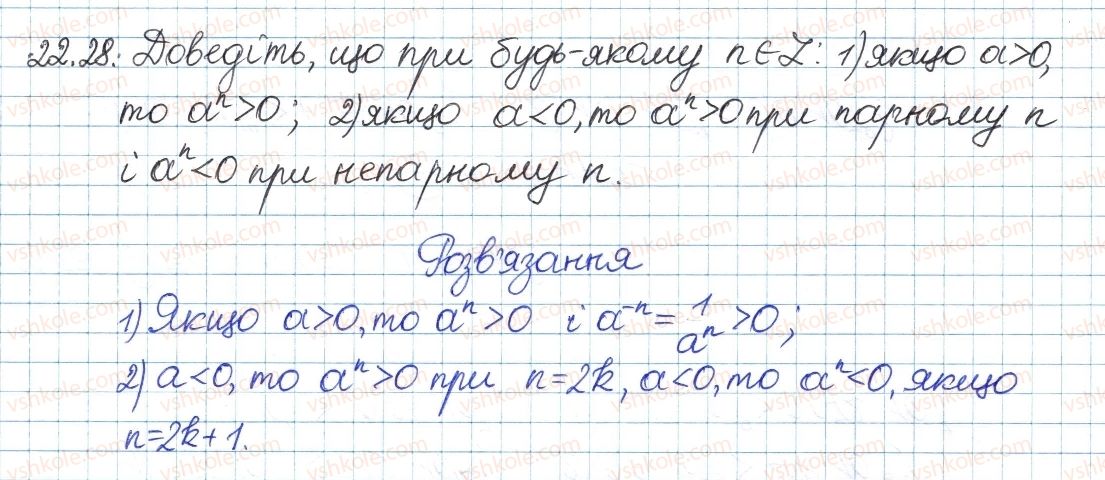 22.28. Доведіть, що при будь-якому n∈Z: 1) якщо a>0,
то aⁿ>0; 2) якщо a<0, то aⁿ>0 при парному n
і aⁿ<0 при непарному n.
Розв'язання
1) Якщо a>0, то aⁿ>0 і a⁻ⁿ = 1/aⁿ >0;
2) a<0, то aⁿ>0 при n=2k, a<0, то aⁿ<0, якщо
n=2k+1.